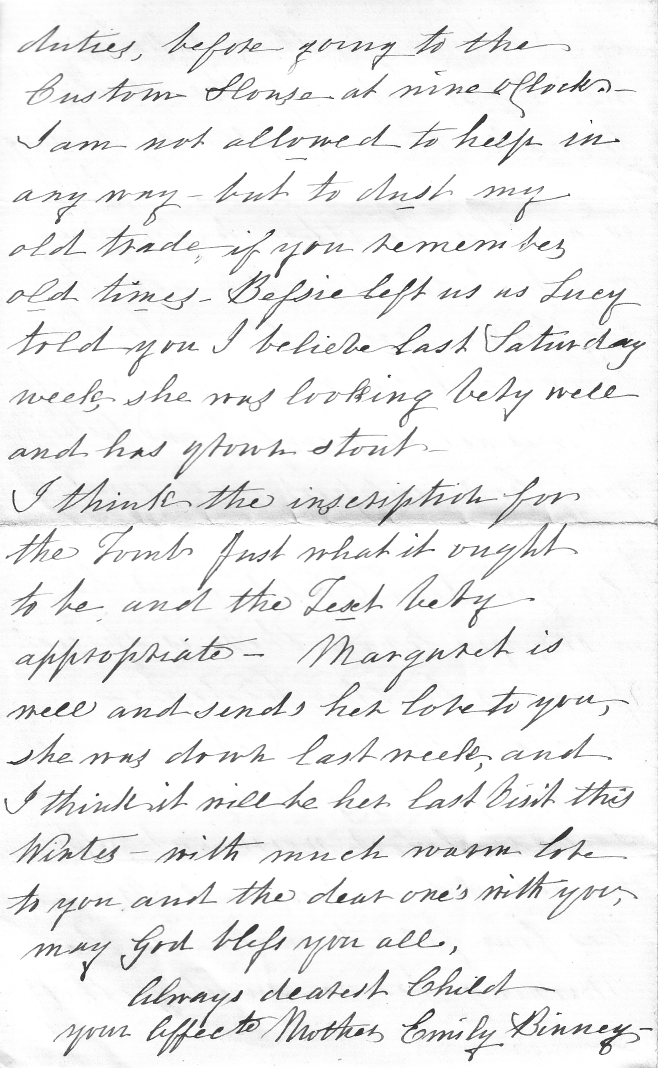 duties, before going to the
Custom House at nine o'Clock. -
I am not allowed to help in
any way - but to dust my
old trade, if you remember
old times - Bessie left us as Lucy
told you I believe last Saturday
week, she was looking very well
and has grown stout -
I think the inscription for
the Tomb Just what it ought
to be, and the Text very
appropriate - Margaret is
well and sends her love to you,
she was down last week, and
I think it will be her last Visit this
Winter - with much warm love
to you and the dear one's with you,
may God bless you all,
Always dearest Child
your Affecte Mother Emily Binney -